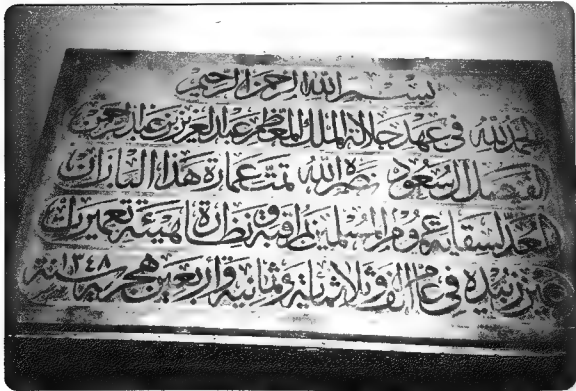 بسم الله الرحمن الرحيم
الحمد لله في عهد جلالة الملك المعظم عبد العزيز بن عبد الرحمن
الفيصل السعود نصره الله تمت عمارة هذا البازان
المعد لسقاية عموم المسلمين بمراقبة ونظارة هيئة تعميرات
عين زبيدة في عام الف وثلاثمائة وثمانية واربعين هجرية سنة ١٣٤٨